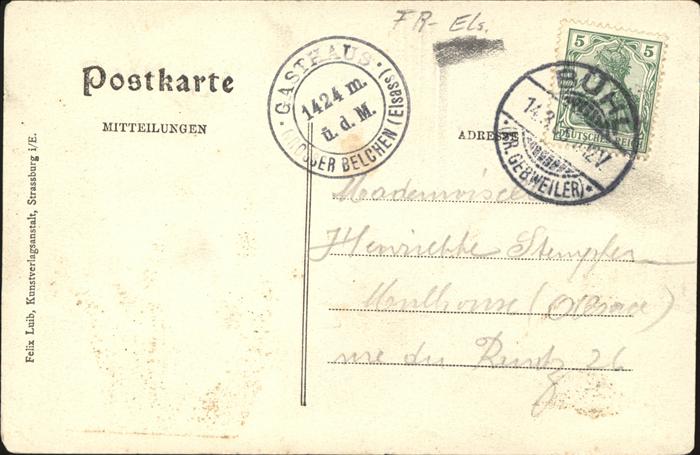 FR-Els.
Postkarte
MITTEILUNGEN
GASTHAUS
1424 m.
ü. d. M.
GROSSER BELCHEN (Elsass)
5 5
DEUTSCHES REICH
BÜHL
14.
(KR. GEBWEILER)
ADRESSE
Mademoiselle
Henriette Stempfer
Mulhouse (Alsace)
rue du 26
Felix Luib, Kunstverlagsanstalt, Strassburg i/E.